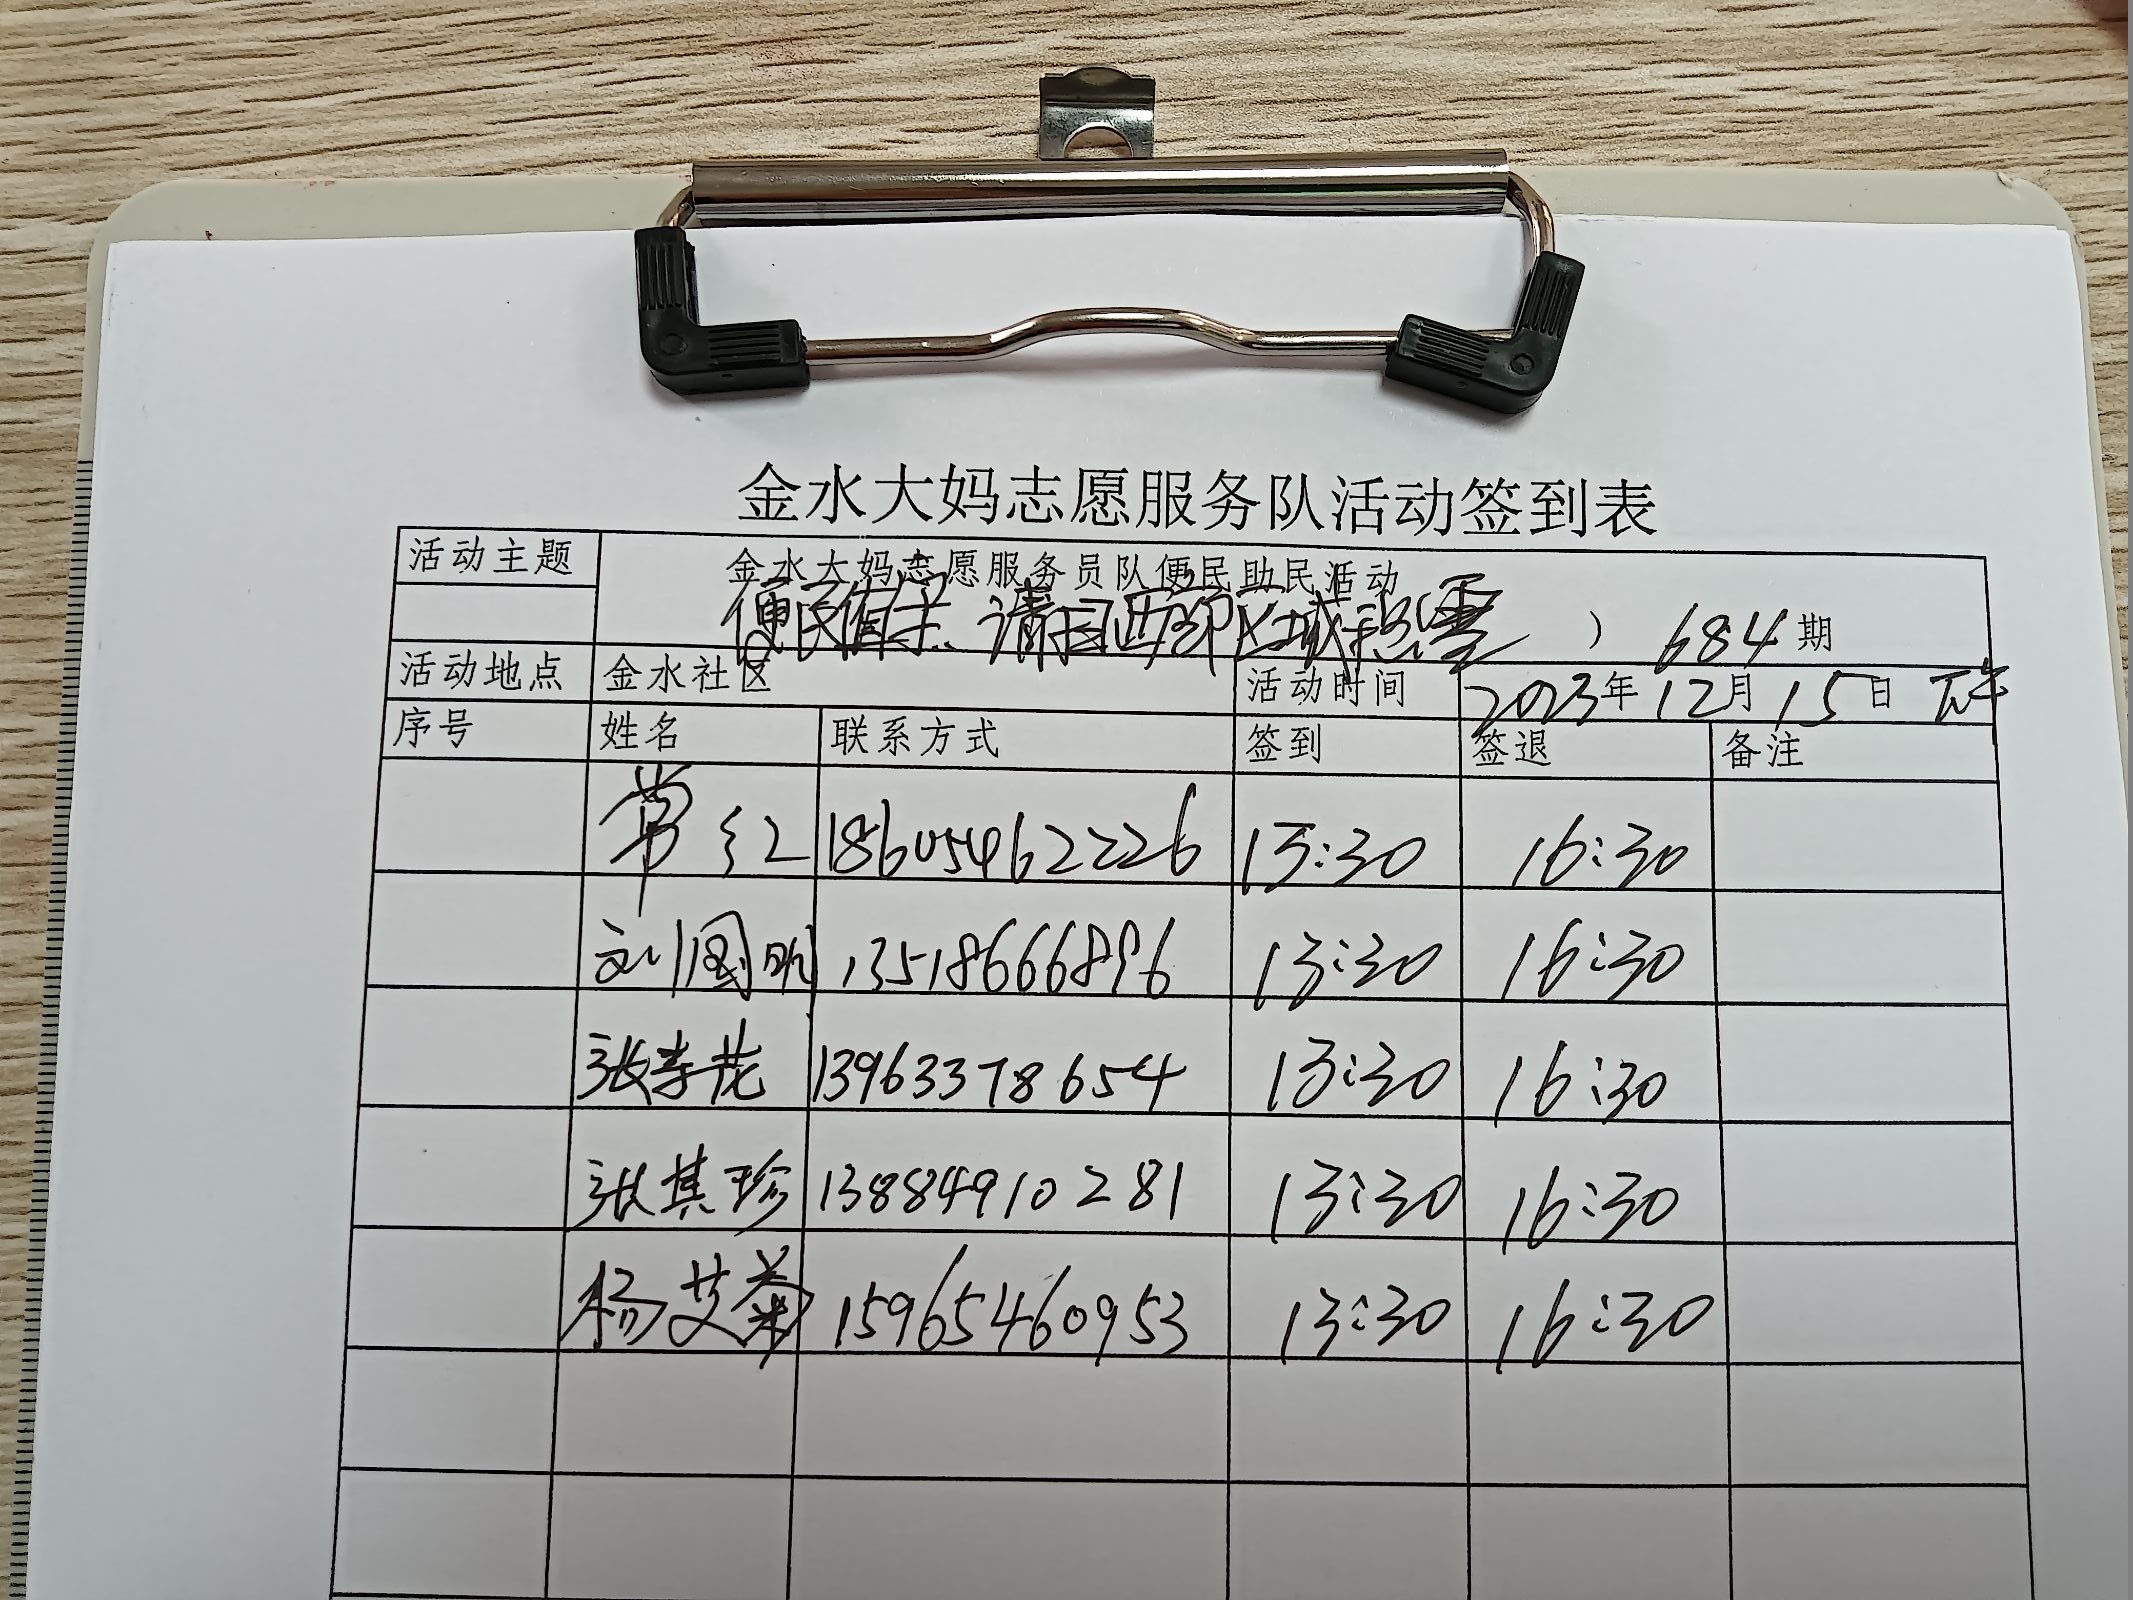 金水大妈志愿服务队活动签到表
活动主题 金水大妈志愿服务员队便民助民活动
便民值守、清园西部区域积雪 ） 684期
活动地点 金水社区 活动时间 2023年12月15日 下午
序号 姓名 联系方式 签到 签退 备注
常红 18605462226 13:30 16:30
刘国明 13518666896 13:30 16:30
张孝花 13963378654 13:30 16:30
张其珍 13884910281 13:30 16:30
杨艾菊 15965460953 13:30 16:30